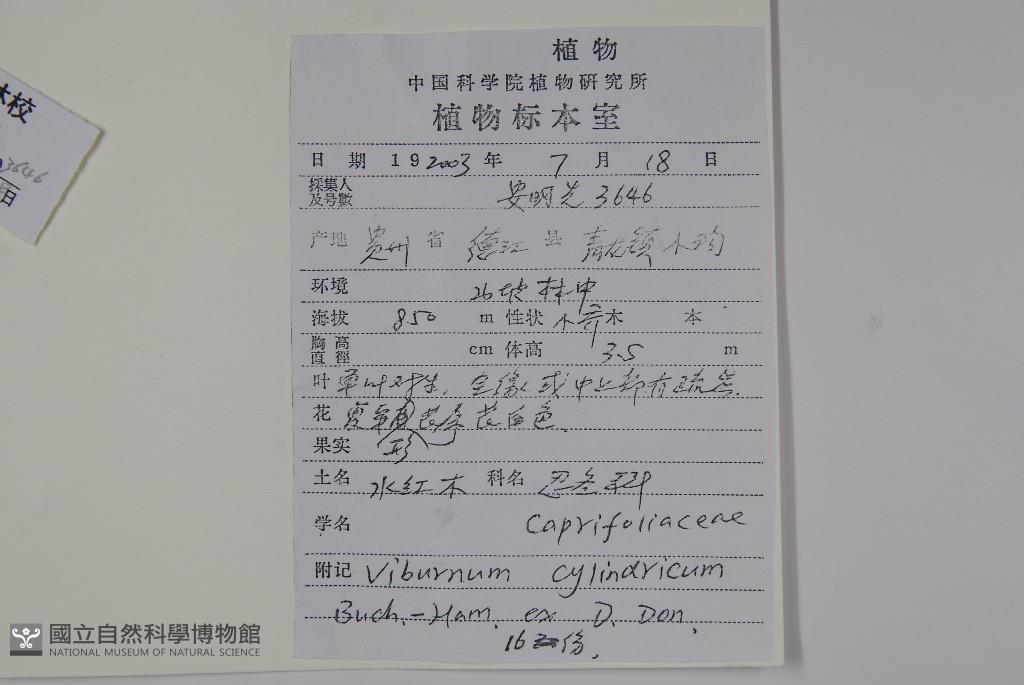 植物
中国科学院植物研究所
植物标本室
日期 19 2003 年 7 月 18 日
採集人及号數 安明先 3646
产地 贵州 省 德江 县 青龙镇
环境 坡林中
海拔 850 m 性状 小乔木 本
胸高直徑 cm 体高 3.5 m
叶 单叶对生，全缘或中上部有疏齿.
花 花序 花白色.
果实
土名 水红木 科名 忍冬科
学名 Caprifoliaceae
附记 Viburnum cylindricum
Buch.-Ham. ex D. Don.
16 份.
林校
3646
日
國立自然科學博物館
NATIONAL MUSEUM OF NATURAL SCIENCE